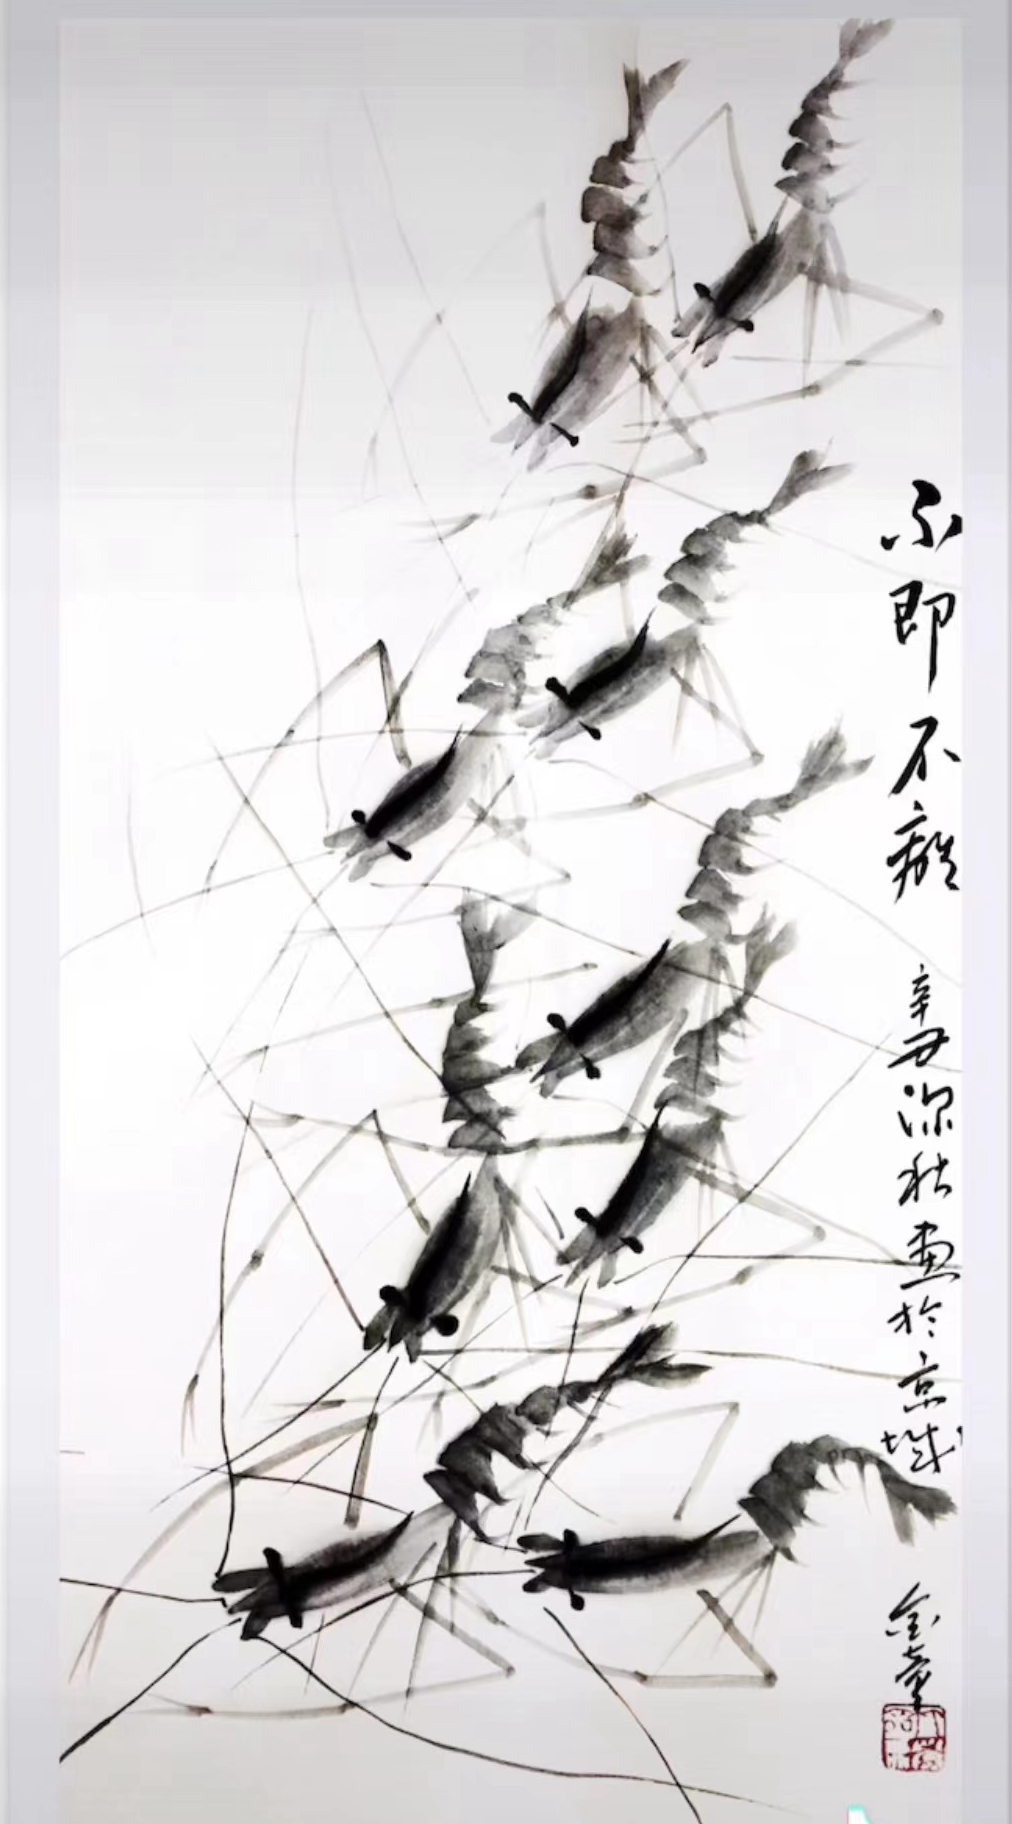 不即不離
辛丑深秋畫於京城
金童